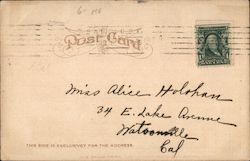 Post Card
Miss Alice Holohan
34 E. Lake Avenue
Watsonville
Cal
THIS SIDE IS EXCLUSIVELY FOR THE ADDRESS.